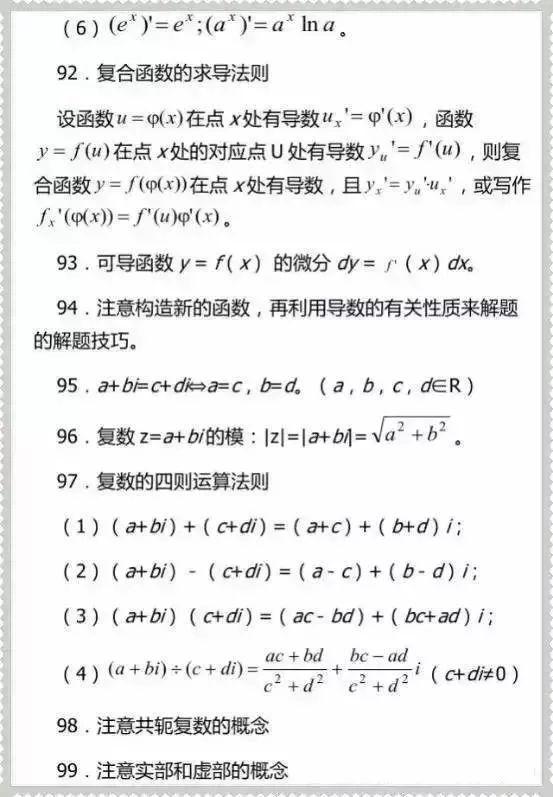 （6）(eˣ)'=eˣ;(aˣ)'=aˣ ln a 。
92．复合函数的求导法则
设函数u=φ(x)在点x处有导数uₓ'=φ'(x)，函数
y=f(u)在点x处的对应点U处有导数yᵤ'=f'(u)，则复
合函数y=f(φ(x))在点x处有导数，且yₓ'=yᵤ'·uₓ'，或写作
fₓ'(φ(x))=f'(u)φ'(x)。
93．可导函数y=f（x）的微分dy= f'（x）dx。
94．注意构造新的函数，再利用导数的有关性质来解题
的解题技巧。
95．a+bi=c+di⇔a=c，b=d。（a，b，c，d∈R）
96．复数z=a+bi的模：|z|=|a+bi|=√(a²+b²)。
97．复数的四则运算法则
（1）（a+bi）+（c+di）=（a+c）+（b+d）i；
（2）（a+bi）-（c+di）=（a-c）+（b-d）i；
（3）（a+bi）（c+di）=（ac-bd）+（bc+ad）i；
（4）(a+bi)÷(c+di)=(ac+bd)/(c²+d²)+(bc-ad)/(c²+d²) i（c+di≠0）
98．注意共轭复数的概念
99．注意实部和虚部的概念